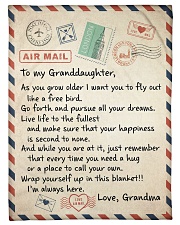 AIR MAIL
To my Granddaughter,
As you grow older I want you to fly out
like a free bird.
Go forth and pursue all your dreams.
Live life to the fullest
and make sure that your happiness
is second to none.
And while you are at it, just remember
that every time you need a hug
or a place to call your own.
Wrap yourself up in this blanket!!
I'm always here.
Love, Grandma